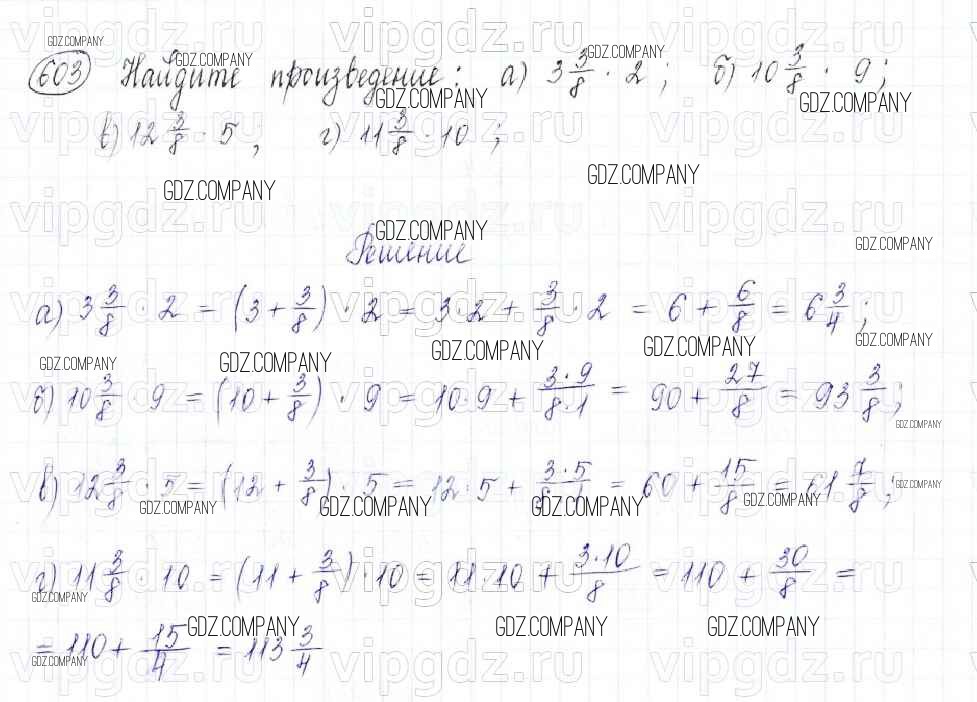 603 Найдите произведение: а) 3 3/8 · 2; б) 10 3/8 · 9;
в) 12 3/8 · 5; г) 11 3/8 · 10;
Решение
а) 3 3/8 · 2 = (3 + 3/8) · 2 = 3·2 + 3/8 · 2 = 6 + 6/8 = 6 3/4;
б) 10 3/8 · 9 = (10 + 3/8) · 9 = 10·9 + 3·9/8·1 = 90 + 27/8 = 93 3/8;
в) 12 3/8 · 5 = (12 + 3/8) · 5 = 12·5 + 3·5/8·1 = 60 + 15/8 = 61 7/8;
г) 11 3/8 · 10 = (11 + 3/8) · 10 = 11·10 + 3·10/8 = 110 + 30/8 =
= 110 + 15/4 = 113 3/4
GDZ.COMPANY
vipgdz.ru